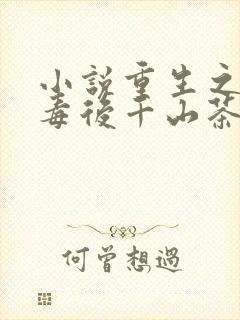 小說重生之
毒後千山茶
何曾想過